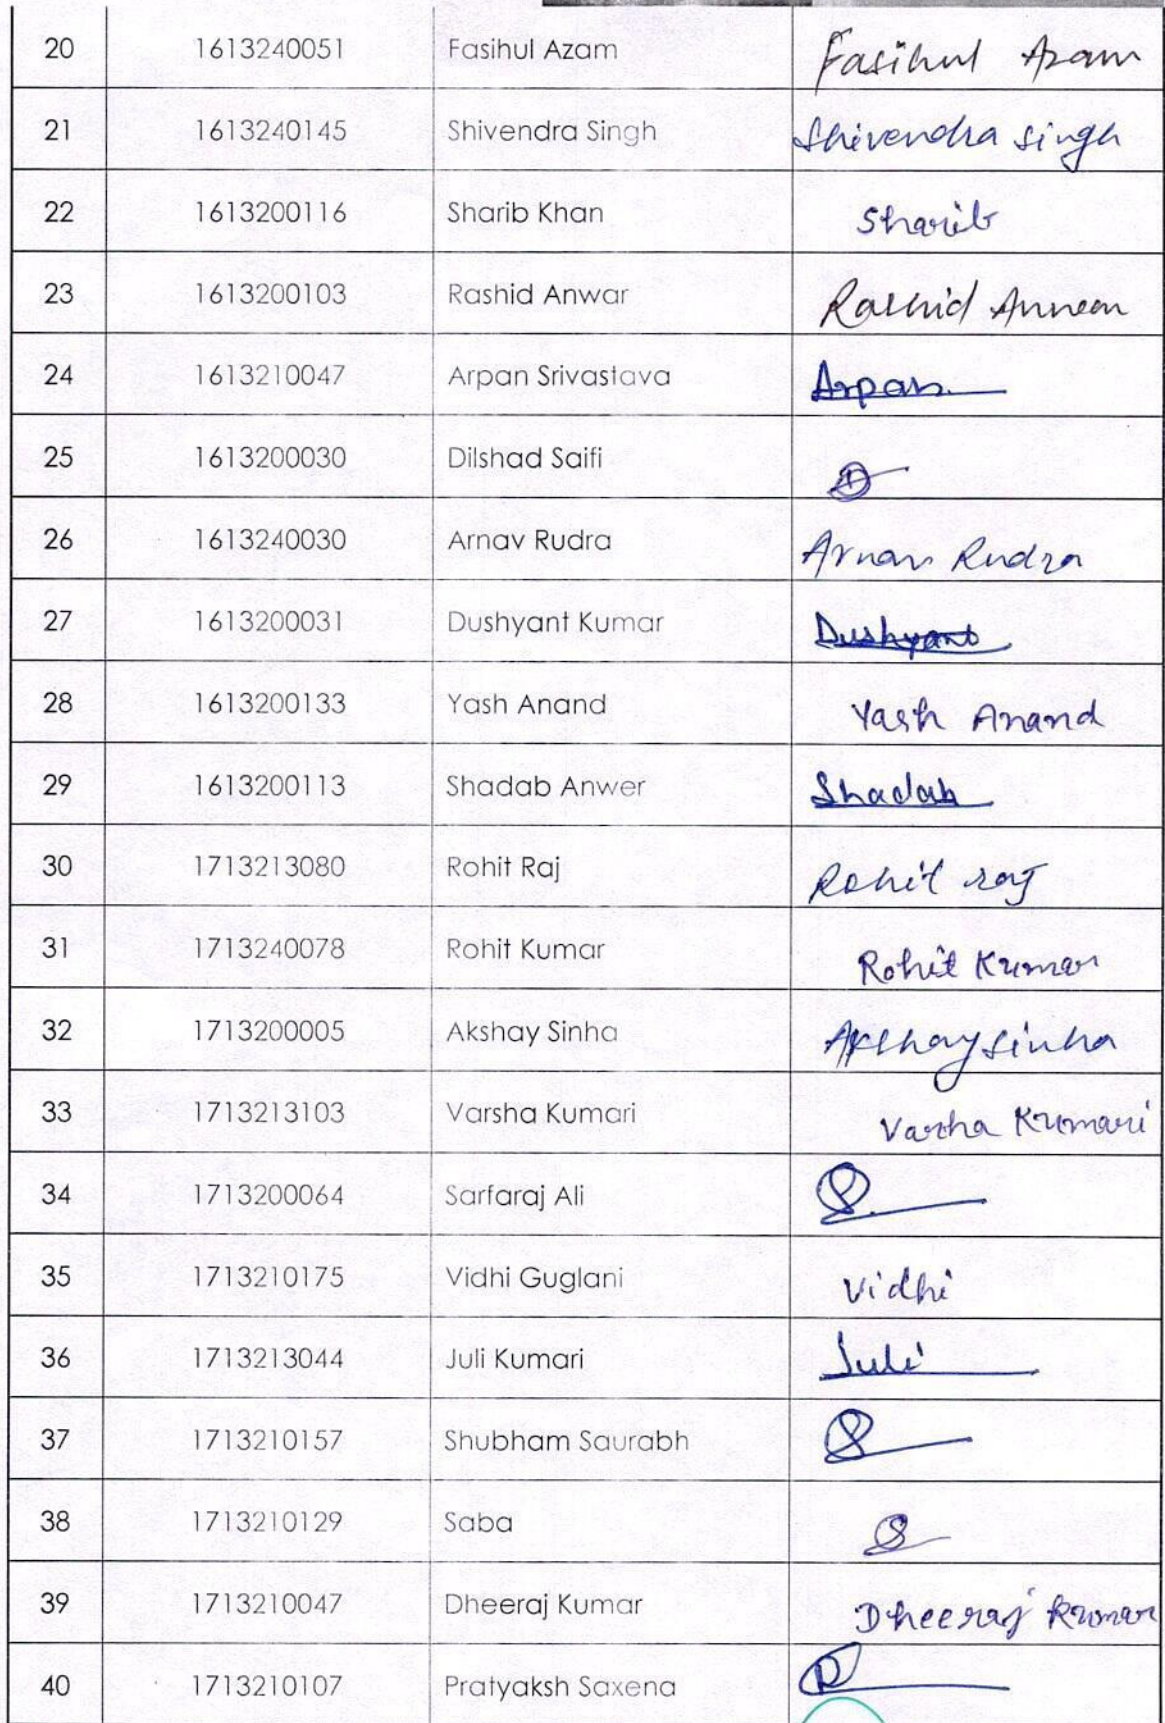 20 1613240051 Fasihul Azam Fasihul Azam
21 1613240145 Shivendra Singh Shivendra Singh
22 1613200116 Sharib Khan Sharib
23 1613200103 Rashid Anwar Rashid Anwar
24 1613210047 Arpan Srivastava Arpan
25 1613200030 Dilshad Saifi
26 1613240030 Arnav Rudra Arnav Rudra
27 1613200031 Dushyant Kumar Dushyant
28 1613200133 Yash Anand Yash Anand
29 1613200113 Shadab Anwer Shadab
30 1713213080 Rohit Raj Rohit raj
31 1713240078 Rohit Kumar Rohit Kumar
32 1713200005 Akshay Sinha Akshay sinha
33 1713213103 Varsha Kumari Varsha Kumari
34 1713200064 Sarfaraj Ali
35 1713210175 Vidhi Guglani Vidhi
36 1713213044 Juli Kumari Juli
37 1713210157 Shubham Saurabh
38 1713210129 Saba
39 1713210047 Dheeraj Kumar Dheeraj Kumar
40 1713210107 Pratyaksh Saxena